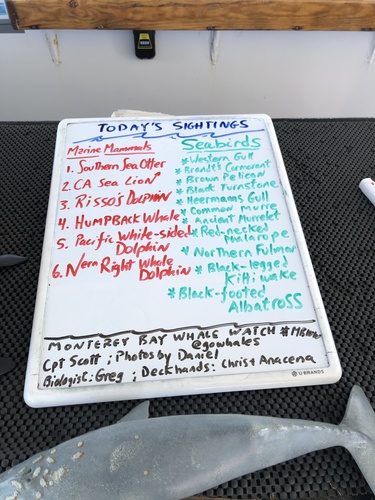 TODAY'S SIGHTINGS
Marine Mammals
1. Southern Sea Otter
2. CA Sea Lion
3. Risso's DOLPHIN
4. HUMPBACK Whale
5. Pacific White-sided
Dolphin
6. Nern Right Whale
Dolphin
Seabirds
* Western Gull
* Brandt's Cormorant
* Brown Pelican
* Black Turnstone
* Heermanns Gull
* Common murre
* Ancient Murrelet
* Red-necked
Phalarope
* Northern Fulmar
* Black-legged
Kittiwake
* Black-footed
AlbatroSS
MONTEREY BAY WHALE WATCH
@gowhales
Cpt Scott ; Photos by Daniel
Biologist: Greg ; Deckhands: Christ Anacena
U BRANDS